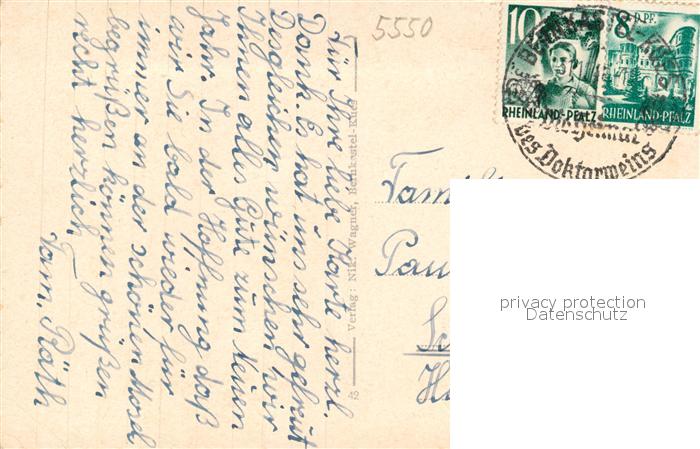 5550
10
8 D.PF.
RHEINLAND-PFALZ
RHEINLAND-PFALZ
BERNKASTEL-KUES
des Doktorweins
Für Ihre liebe Karte herzl.
Dank. Es hat uns sehr gefreut
Desgleichen wünschen wir
Ihnen alles Gute zum neuen
Jahr. In der Hoffnung daß
wir Sie bald wieder für
immer an der schönen Mosel
begrüßen können grüßen
recht herzlich
Fam. Räth
48 Verlag: Nik. Wagner, Bernkastel-Kues
Fami
Pau
privacy protection
Datenschutz